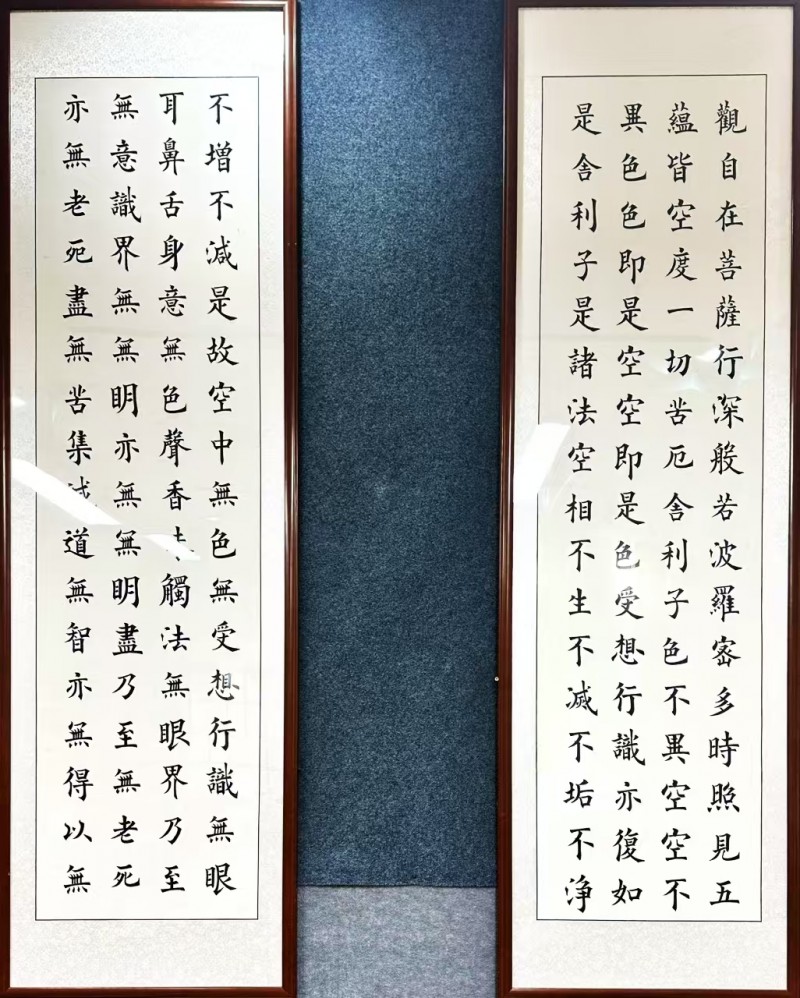 觀自在菩薩行深般若波羅密多時照見五
蘊皆空度一切苦厄舍利子色不異空空不
異色色即是空空即是色受想行識亦復如
是舍利子是諸法空相不生不滅不垢不淨
不增不減是故空中無色無受想行識無眼
耳鼻舌身意無色聲香觸法無眼界乃至
無意識界無無明亦無無明盡乃至無老死
亦無老死盡無苦集道無智亦無得以無